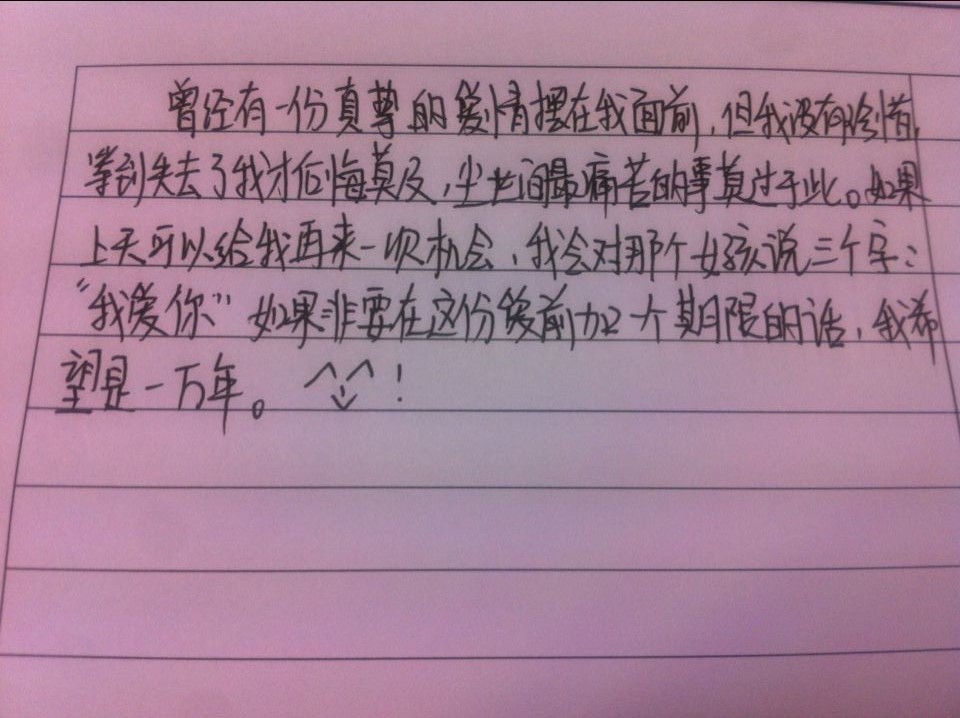 曾经有一份真尊的爱情摆在我面前，但我没有珍惜，
等到失去了我才后悔莫及，尘世间最痛苦的事莫过于此。如果
上天可以给我再来一次机会，我会对那个女孩说三个字：
“我爱你”如果非要在这份爱前加上一个期限的话，我希
望是一万年。^_^！